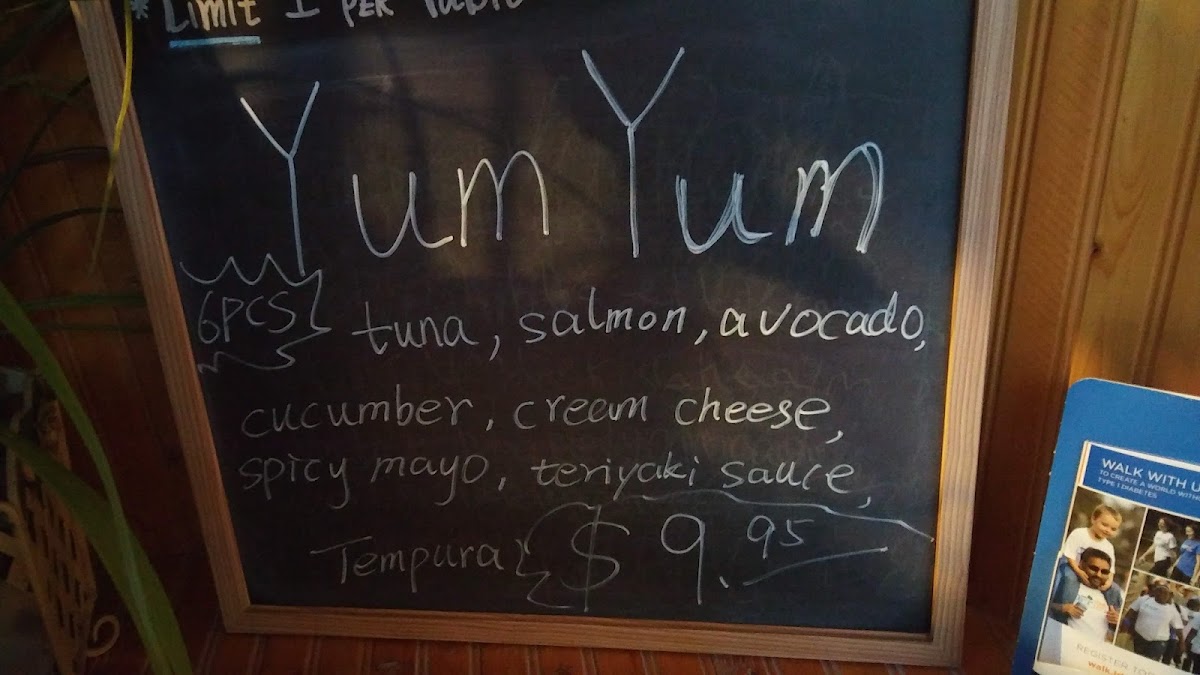 * Limit 1 PER Table
Yum Yum
6PCS tuna, salmon, avocado,
cucumber, cream cheese,
spicy mayo, teriyaki sauce,
Tempura $9.95
WALK WITH U
TO CREATE A WORLD WITH
TYPE 1 DIABETES
REGISTER TO
walk.